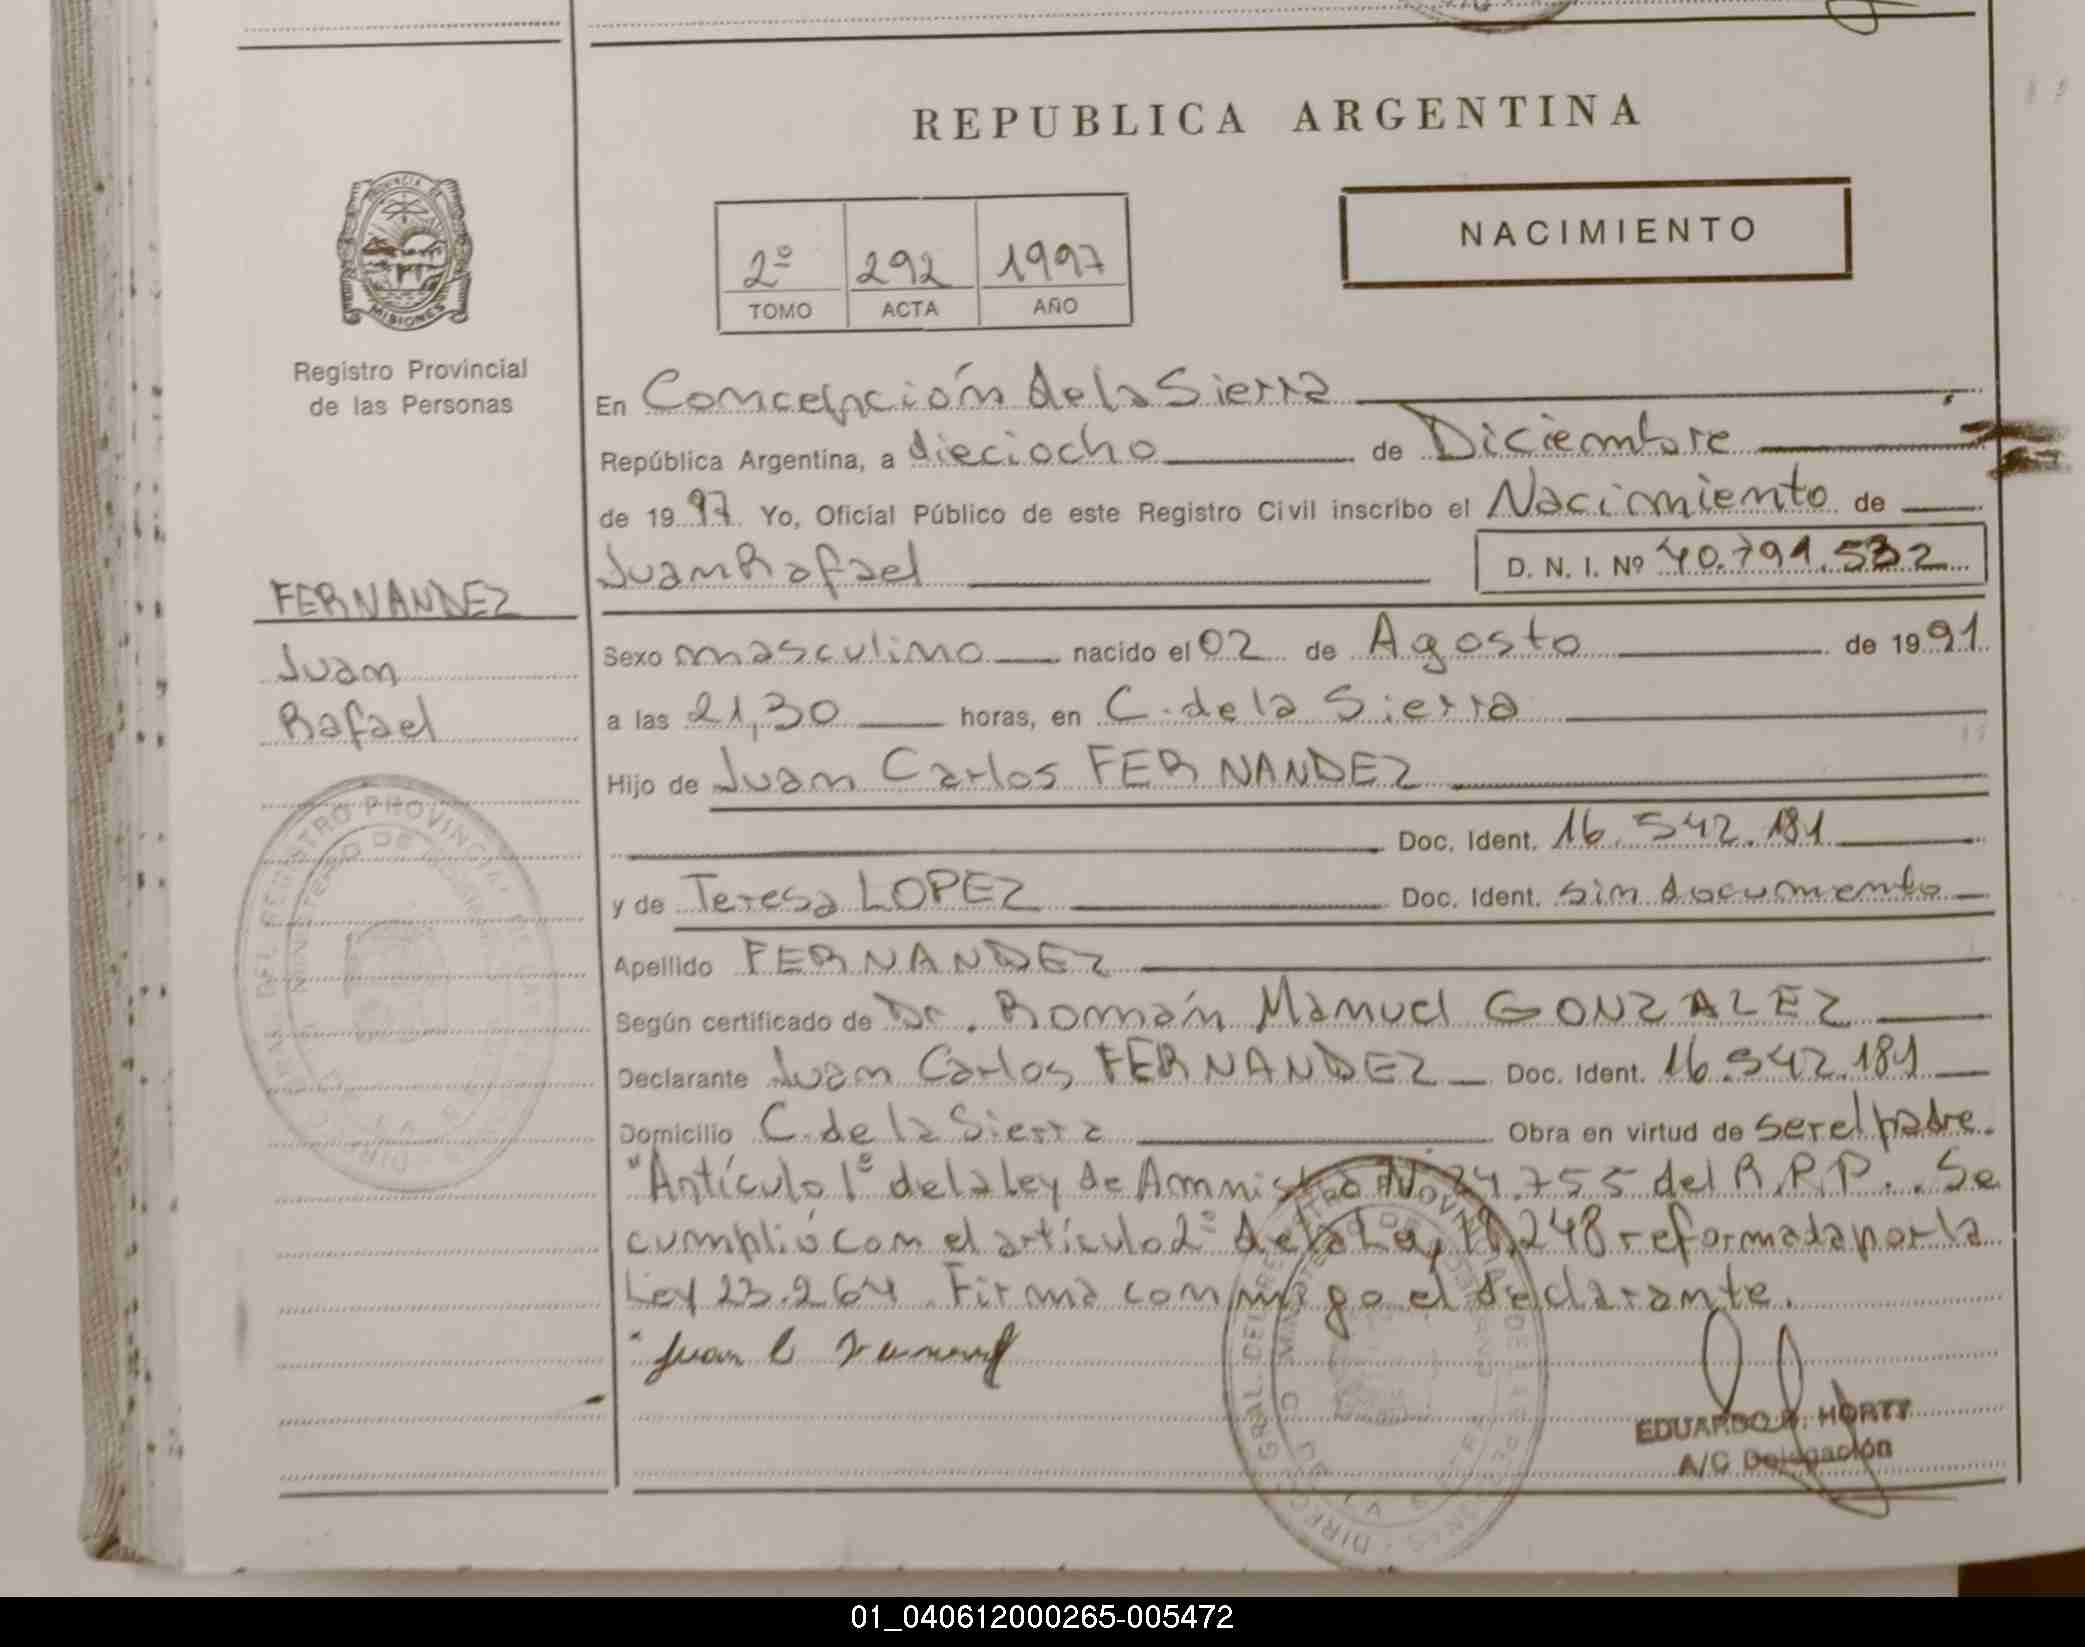 REPUBLICA ARGENTINA
NACIMIENTO
2º 292 1997
TOMO ACTA AÑO
MISIONES
Registro Provincial
de las Personas
En Concepción de la Sierra
República Argentina, a dieciocho de Diciembre
de 1997. Yo, Oficial Público de este Registro Civil inscribo el Nacimiento de
Juan Rafael D. N. I. Nº 40.791.532
FERNANDEZ
Juan
Rafael
Sexo masculino nacido el 02 de Agosto de 1991
a las 21,30 horas, en C. de la Sierra
Hijo de Juan Carlos FERNANDEZ
Doc. Ident. 16.542.181
y de Teresa LOPEZ Doc. Ident. sin documento
Apellido FERNANDEZ
Según certificado de Dr. Román Manuel GONZALEZ
Declarante Juan Carlos FERNANDEZ Doc. Ident. 16.542.181
Domicilio C. de la Sierra Obra en virtud de ser el padre.
"Artículo 1º de la Ley de Amnistía Nº 24.755 del R.R.P.. Se
cumplió con el artículo 2º de la Ley 18.248 reformada por la
Ley 23.264. Firma conmigo el declarante.
EDUARDO R. HORTT
A/C Delegación
01_040612000265-005472